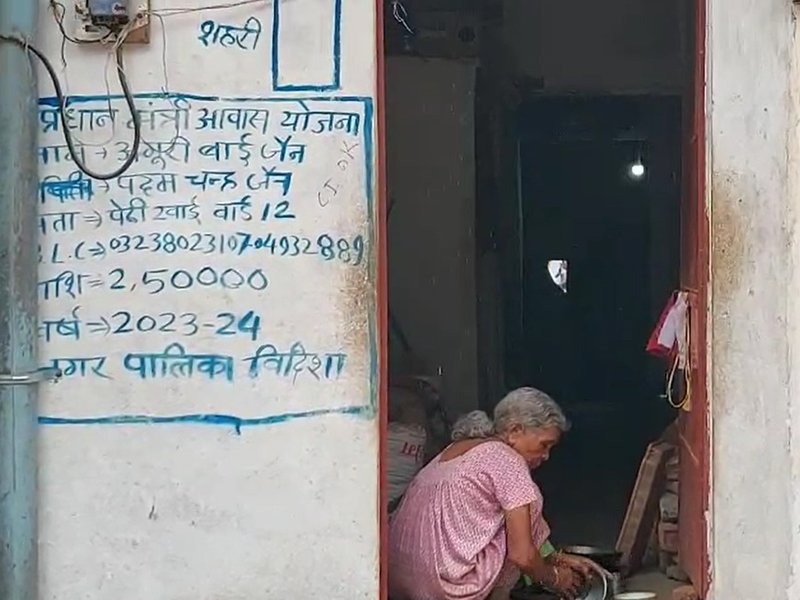 शहरी
प्रधान मंत्री आवास योजना
नाम → अंगूरी बाई जैन
→ पदम चन्द्र जैन
पता → पेढी स्वाई वार्ड 12
B.L.C → 0323802310704932889
राशि = 2,50000
वर्ष → 2023-24
नगर पालिका विदिशा